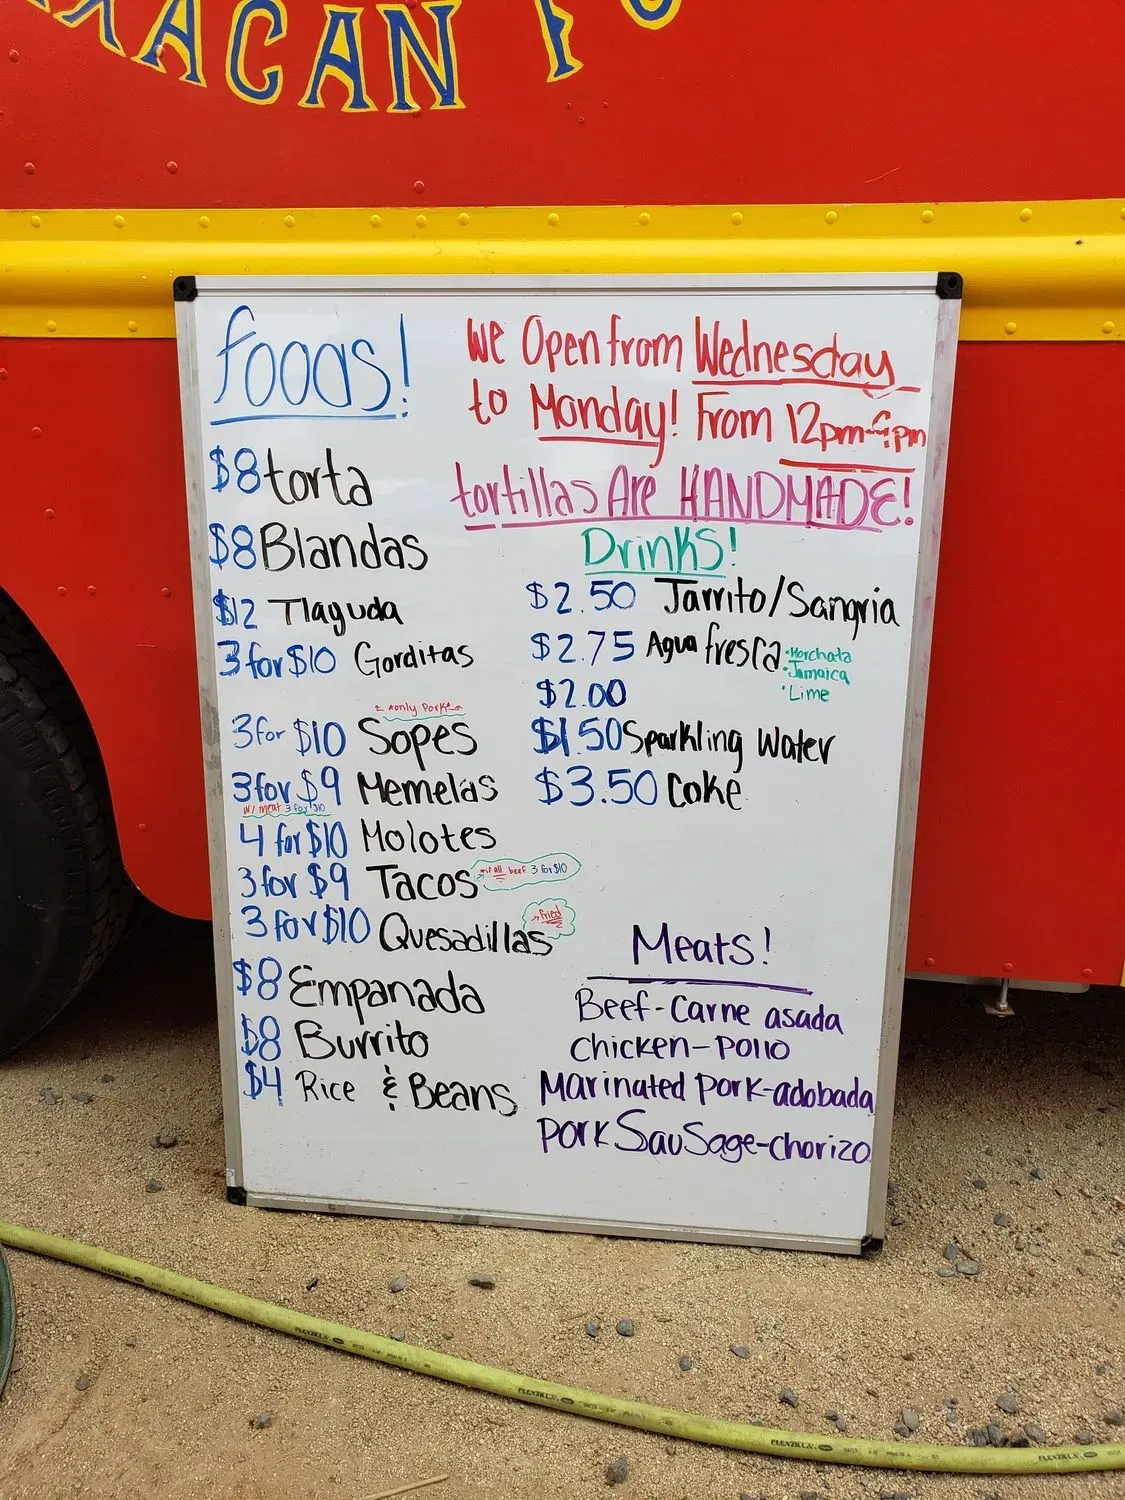 AXACAN FO
foods!
We Open from Wednesday
to Monday! From 12pm-6pm
tortillas Are HANDMADE!
$8 torta
$8 Blandas
$12 Tlaguda
3 for $10 Gorditas
* only Pork *
3 for $10 Sopes
3 for $9 Memelas
w/ meat 3 for $10
4 for $10 Molotes
3 for $9 Tacos
*if all beef 3 for $10
3 for $10 Quesadillas
fried
$8 Empanada
$8 Burrito
$4 Rice & Beans
Drinks!
$2.50 Jarrito/Sangria
$2.75 Agua fresca
•Horchata
•Jamaica
•Lime
$2.00
$1.50 Sparkling Water
$3.50 Coke
Meats!
Beef-Carne asada
Chicken-Pollo
Marinated Pork-adobada
Pork Sausage-chorizo
FLEXZILLA
FLEXZILLA
FLEXZILLA
FLEXZILLA
FLEXZILLA